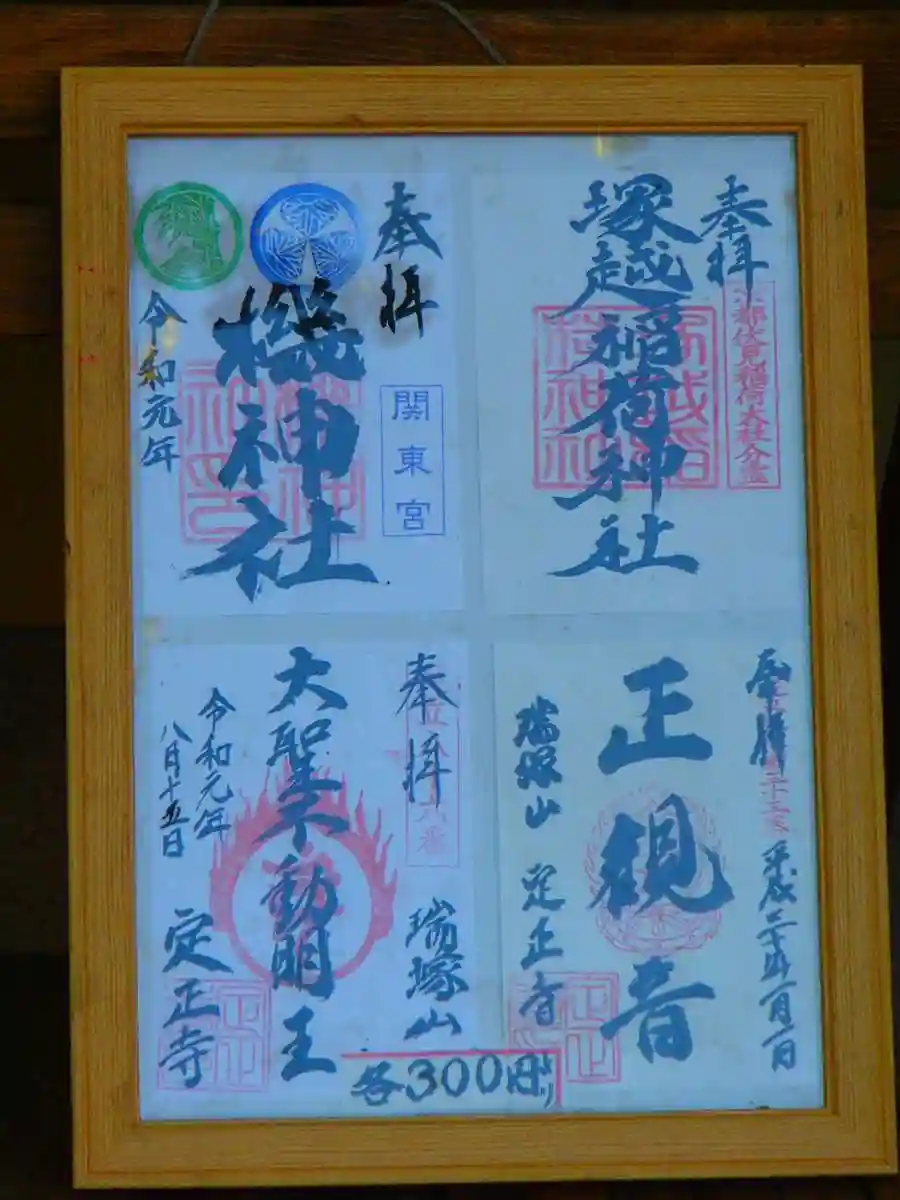 奉拝
塚越稲荷神社
京都伏見稲荷大社分霊
奉拝
関東宮
機神社
令和元年
奉拝
正観音
瑞塚山 定正寺
奉拝
瑞塚山
大聖不動明王
令和元年
八月十五日
定正寺
各300円